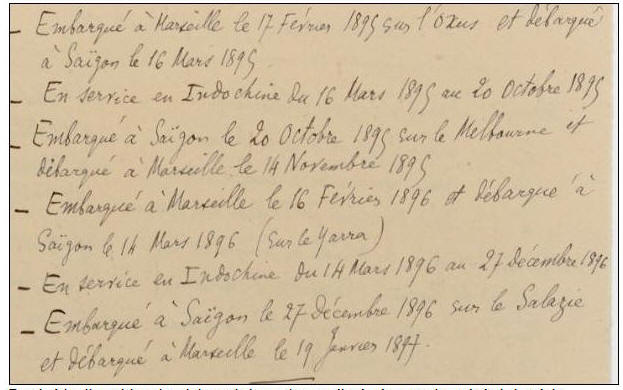 — Embarqué à Marseille le 17 Février 1895 sur l'Oxus et débarqué
à Saïgon le 16 Mars 1895.
— En service en Indochine du 16 Mars 1895 au 20 Octobre 1895
— Embarqué à Saïgon le 20 Octobre 1895 sur le Melbourne et
débarqué à Marseille le 14 Novembre 1895
— Embarqué à Marseille le 16 Février 1896 et débarqué à
Saïgon le 14 Mars 1896 (sur le Yarra)
— En service en Indochine du 14 Mars 1896 au 27 Décembre 1896
— Embarqué à Saïgon le 27 Décembre 1896 sur le Salazie
et débarqué à Marseille le 19 Janvier 1897.